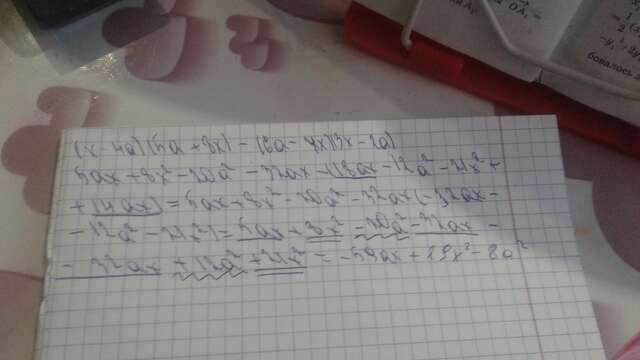 (x - 4a)(5a + 8x) - (6a - 7x)(3x - 2a)
5ax + 8x² - 20a² - 32ax - (18ax - 12a² - 21x² +
+ 14ax) = 5ax + 8x² - 20a² - 32ax - (32ax -
- 12a² - 21x²) = 5ax + 8x² - 20a² - 32ax -
- 32ax + 12a² + 21x² = -59ax + 29x² - 8a²
бовалось